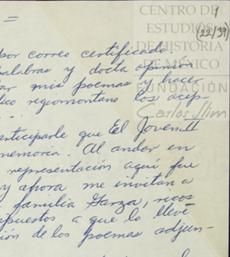 CENTRO DE
ESTUDIOS
DE HISTORIA
DE MÉXICO
FUNDACIÓN
Carlos Slim
1
(22/39)
por correo certificado.
palabras y docta
mis poemas y hacer
regiomontano los acep-
participarle que El Joven II
memoria. Al andar en
representación aquí fue
y ahora me invitan a
familia Garza, ricos
puestos a que lo lleve
ción de los poemas adjun-